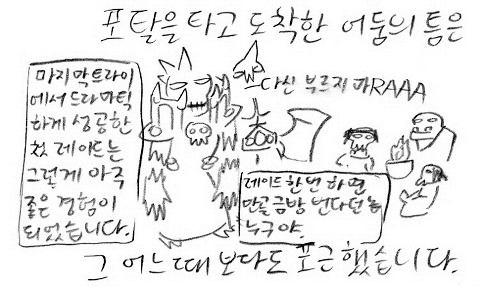 포탈을 타고 도착한 어둠의 틈은
마지막트라이
에서 드라마틱
하게 성공한
첫 레이드는
그렇게 아주
좋은 경험이
되었습니다.
다신 부르지 마RAAA
레이드 한번 하면
만골 금방 번다던 놈
누구야.
그 어느때보다도 포근했습니다.